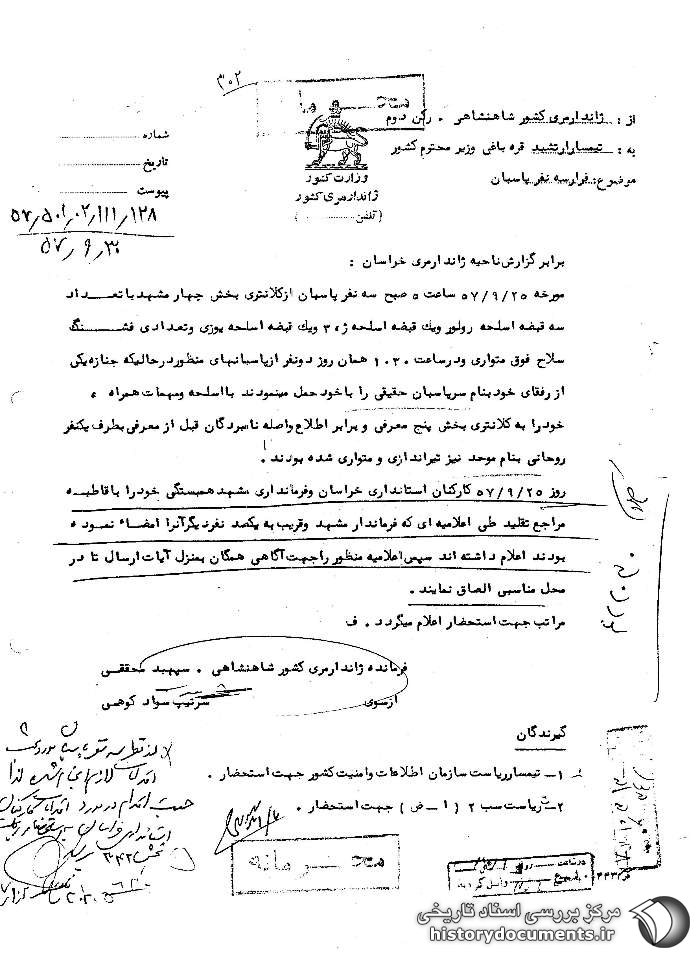 ۳۰۲
محرمانه
از : ژاندارمری کشور شاهنشاهی . رکن دوم
به : تیمسار ارتشبد قره باغی وزیر محترم کشور
موضوع : فرار سه نفر پاسبان
وزارت کشور
ژاندارمری کشور
(تلفن ............)
شماره
تاریخ
پیوست
۵۷٫۵۰۱٫۰۲٫۱۱۱٫۱۲۸
۵۷٫۹٫۳۰
برابر گزارش ناحیه ژاندارمری خراسان :
مورخه ۵۷/۹/۲۵ ساعت ۵ صبح سه نفر پاسبان از کلانتری بخش چهار مشهد با تعداد
سه قبضه اسلحه رولور ویک قبضه اسلحه ژ۳ ویک قبضه اسلحه یوزی وتعدادی فشنگ
سلاح فوق متواری ودر ساعت ۱۰۳۰ همان روز دونفر از پاسبانهای منظور در حالیکه جنازه یکی
از رفقای خود بنام سرپاسبان حقیقی را باخود حمل مینمودند با اسلحه ومهمات همراه
خود را به کلانتری بخش پنج معرفی و برابر اطلاع واصله نامبردگان قبل از معرفی بطرف یکنفر
روحانی بنام موحد نیز تیراندازی و متواری شده بودند .
روز ۵۷/۹/۲۵ کارکنان استانداری خراسان وفرمانداری مشهد همبستگی خود را با قاطبه
مراجع تقلید طی اعلامیه ای که فرماندار مشهد وقریب به یکصد نفر دیگر آنرا امضاء نموده
بودند اعلام داشته اند سپس اعلامیه منظور را جهت آگاهی همگان بمنزل آیات ارسال تا در
محل مناسبی الصاق نمایند .
مراتب جهت استحضار اعلام میگردد . ف
فرمانده ژاندارمری کشور شاهنشاهی . سپهبد محققی
ازسوی سرتیپ سواد کوهی
گیرندگان
۱- تیمسار ریاست سازمان اطلاعات وامنیت کشور جهت استحضار .
۲- ریاست سب ۲ (۱-ض) جهت استحضار .
محرمانه
مرکز بررسی اسناد تاریخی
historydocuments.ir